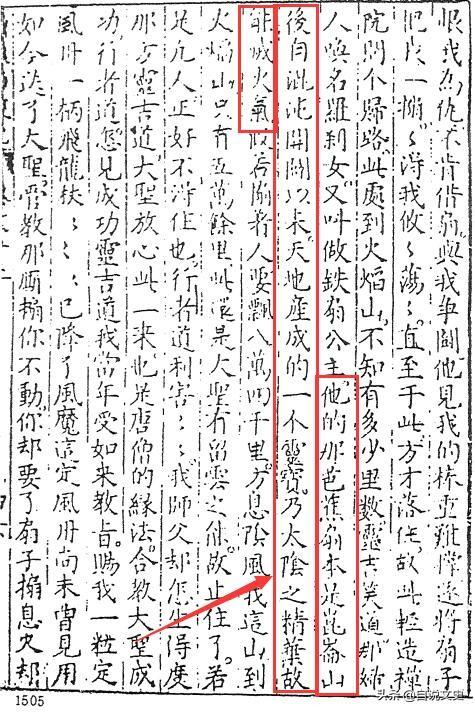 恨我為仇不肯借扇與我爭鬪他見我的棒重難撑遂將扇子
把我一搧〻得我攸〻蕩〻直至于此方才落住故此輕造禪
院問个歸路此處到火焰山不知有多少里數靈吉笑道那婦
人喚名羅剎女又叫做鉄扇公主他的那芭蕉扇本是崑崙山
後自混沌開闢以來天地產成的一个靈寶乃太陰之精葉故
能滅火氣假若搧着人要飄八萬四千里方息陰風我這山到
火焰山只有五萬餘里此還是大聖有留雲之能故止住了若
是凡人正好不得住也行者道利害〻〻我師父却怎生得度
那方靈吉道大聖放心此一來也是唐僧的緣法合教大聖成
功行者道怎見成功靈吉道我當年受如來教旨賜我一粒定
風丹一柄飛龍杖〻〻〻已降了風魔這定風丹尚未曾見用
如今送了大聖管教那厮搧你不動你却要了扇子搧息火却
1505
头条 @自说文史